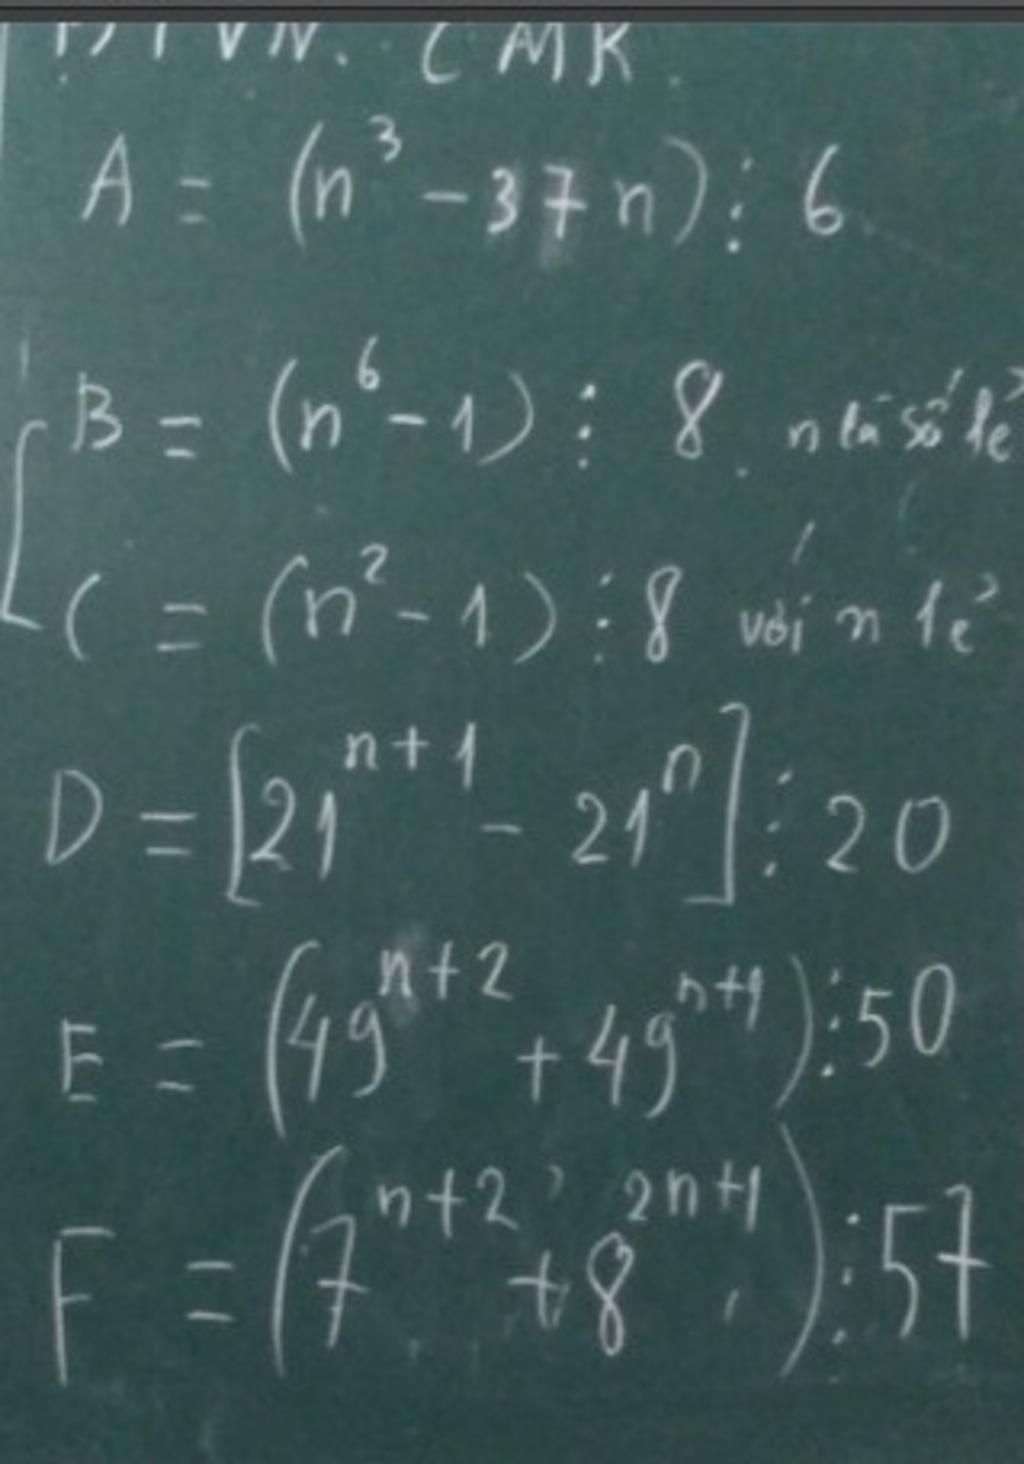 BTVN. CMR.
A = (n³ - 37n) ⋮ 6
B = (n⁶ - 1) ⋮ 8. n là số lẻ
C = (n² - 1) ⋮ 8 với n lẻ
D = [21ⁿ⁺¹ - 21ⁿ] ⋮ 20
E = (49ⁿ⁺² + 49ⁿ⁺¹) ⋮ 50
F = (7ⁿ⁺² + 8²ⁿ⁺¹) ⋮ 57